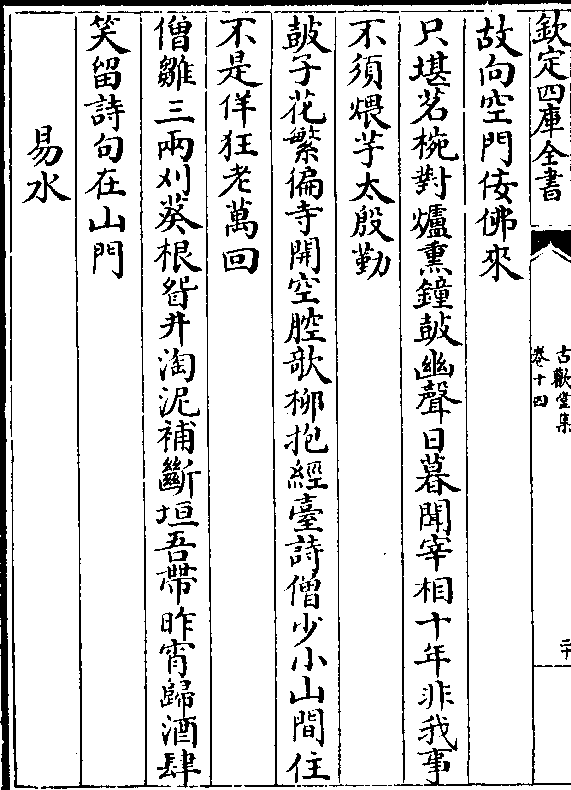 欽定四庫全書
古歡堂集
卷十四
二十
故向空門佞佛來
只堪茗椀對爐熏鐘鼓幽聲日暮聞宰相十年非我事
不須煨芋太殷勤
鼓子花繁偏寺開空腔欹柳抱經臺詩僧少小山間住
不是佯狂老萬回
僧雛三兩刈葵根眢井淘泥補斷垣吾帶昨宵歸酒肆
笑留詩句在山門
易水